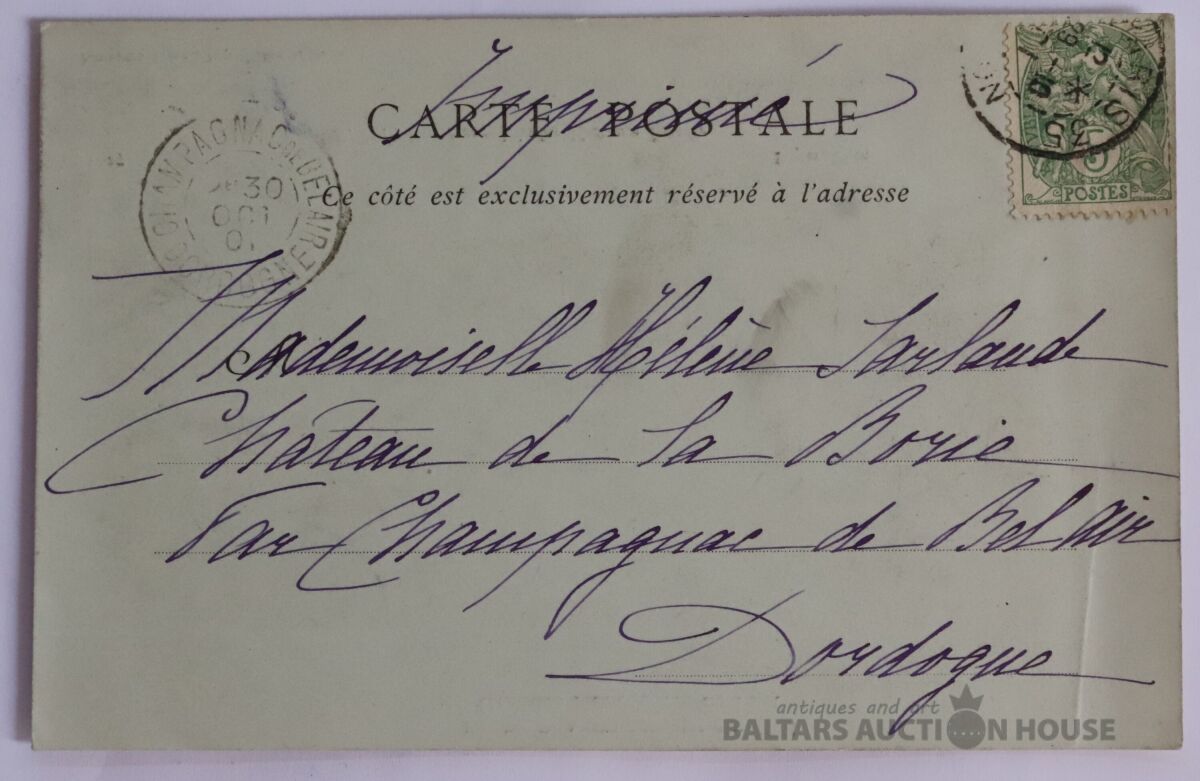 Imprimé
CARTE POSTALE
Ce côté est exclusivement réservé à l'adresse
5
POSTES
30
OCT
01
Mademoiselle Hélène Sarlande
Château de la Borie
Par Champagnac de Bel air
Dordogne
antiques and art
BALTARS AUCTION HOUSE